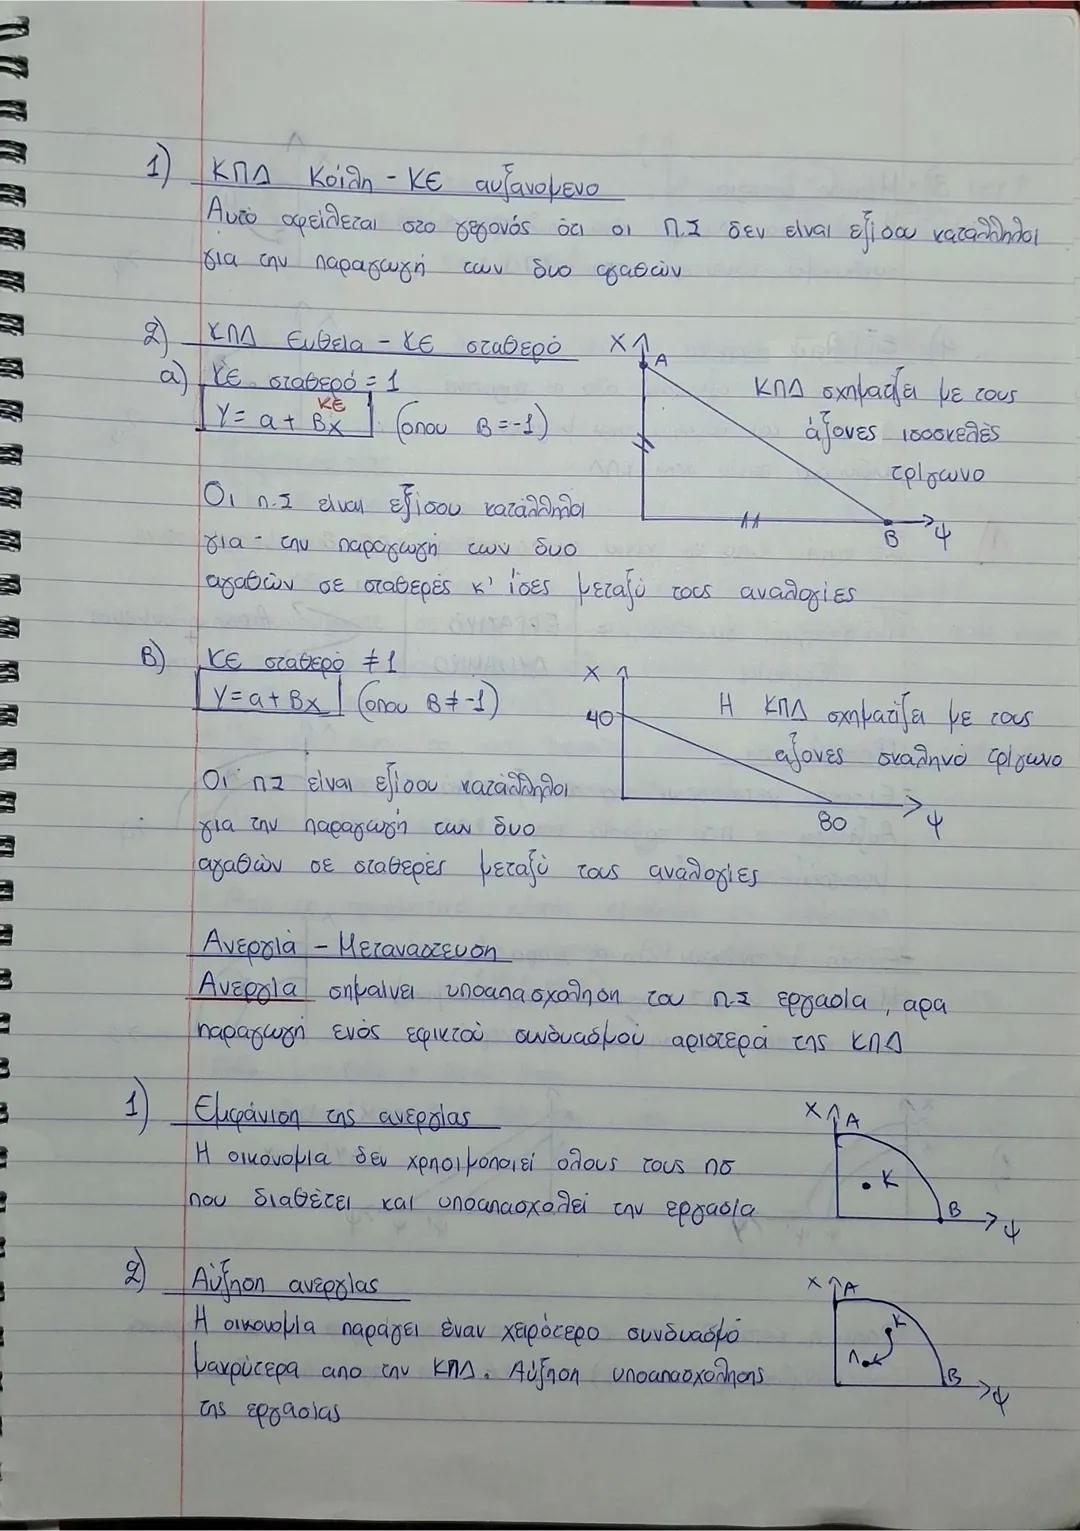 1) ΚΠΔ Κοίλη - ΚΕ αυξανομενο
Αυτό οφείλεται στο γεγονός ότι οι Π.Σ δεν είναι εξίσου κατάλληλοι
για την παραγωγή των δυο αγαθών
2) ΚΠΔ Ευθεία - ΚΕ σταθερό
α) ΚΕ σταθερό = 1
ΚΕ
Υ = α + Βχ (οπου Β = -1)
Χ
Α
ΚΠΔ σχηματίζει με τους
άξονες ισοσκελές
τρίγωνο
Β
Ψ
Οι π.Σ είναι εξίσου κατάλληλοι
για - την παραγωγή των δυο
αγαθών σε σταθερές κ' ίσες μεταξύ τους αναλογίες
Β) ΚΕ σταθερό ≠ 1
Υ = α + Βχ (οπου Β ≠ -1)
Χ
40
Η ΚΠΔ σχηματίζει με τους
άξονες σκαληνό τρίγωνο
80
Ψ
Οι πΣ είναι εξίσου κατάλληλοι
για την παραγωγή των δυο
αγαθών σε σταθερές μεταξύ τους αναλογίες
Ανεργία - Μετανάστευση
Ανεργία σημαίνει υποαπασχόληση του π.Σ εργασία, αρα
παραγωγή ενός εφικτού συνδυασμού αριστερά της ΚΠΔ
1) Εμφάνιση της ανεργίας
Η οικονομία δεν χρησιμοποιεί ολους τους πσ
που διαθέτει και υποαπασχολεί την εργασία
Χ
Α
Κ
Β
Ψ
2) Αύξηση ανεργίας
Η οικονομία παράγει έναν χειρότερο συνδυασμό
μακρύτερα απο την ΚΠΔ. Αύξηση υποαπασχόλησης
της εργασίας
Χ
Α
Κ
Λ
Β
Ψ